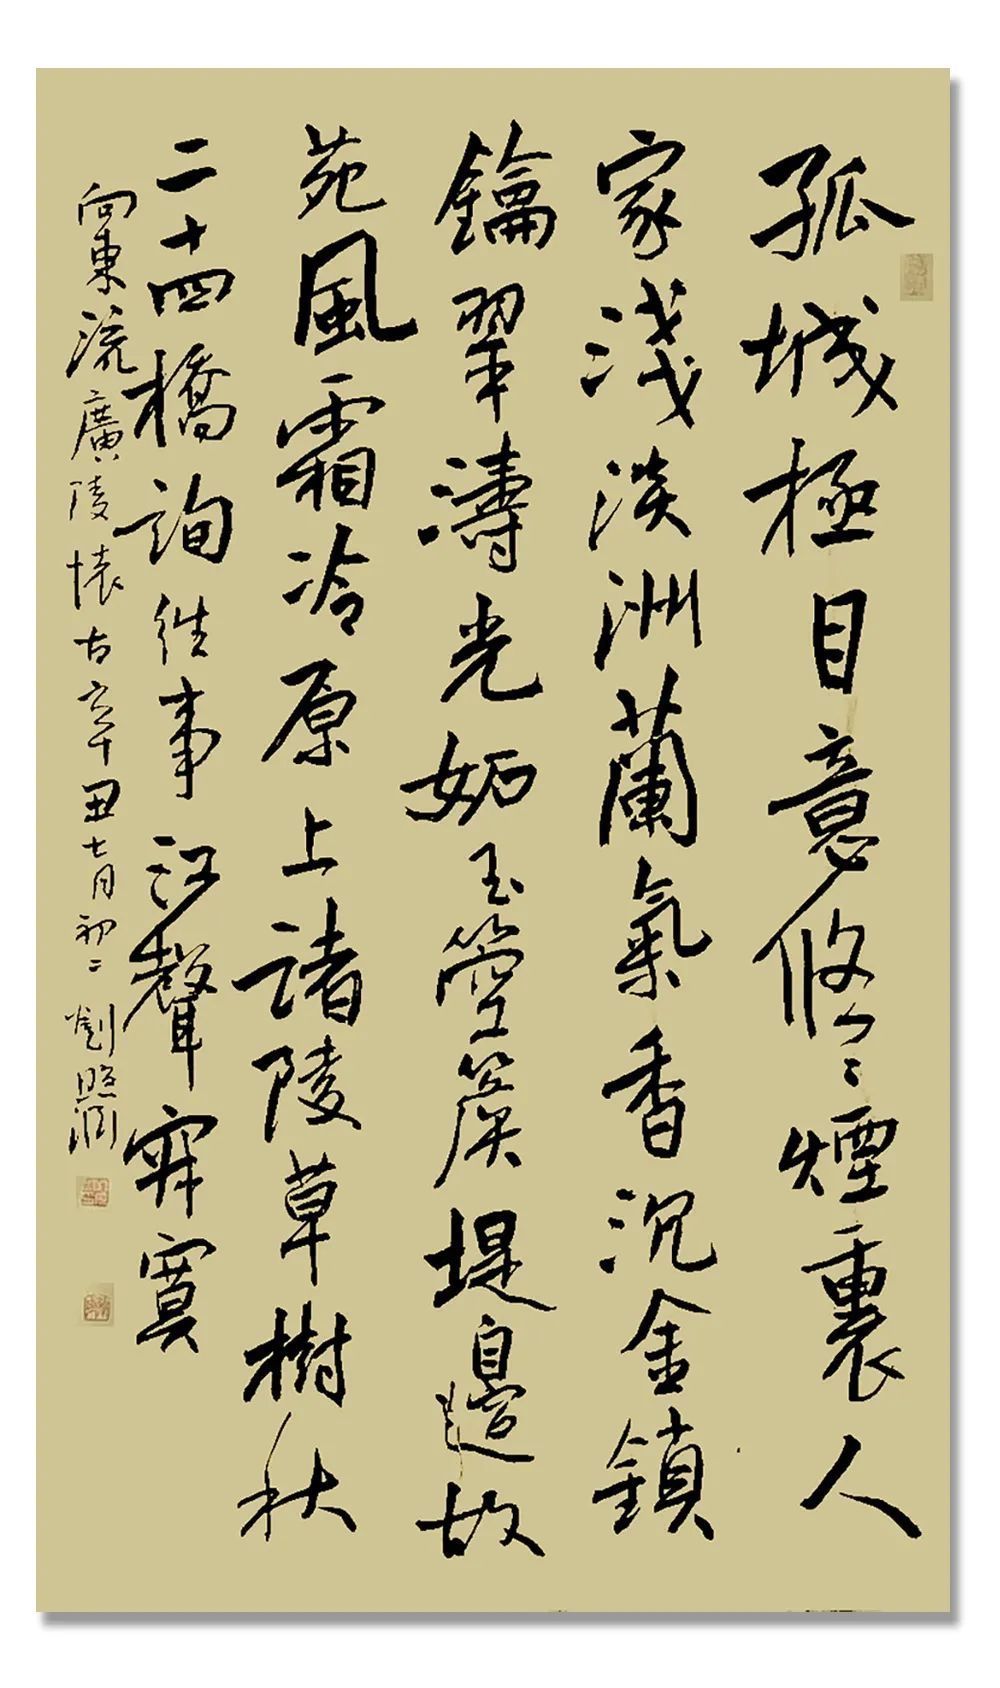 孤城極目意悠々煙裏人
家淺淡洲蘭氣香沉金鎖
鑰翠濤光妬玉箜篌堤邊故
苑風霜冷原上諸陵草樹秋
二十四橋詢往事江聲寂寞
向東流廣陵懷古辛丑七月初二劉照潤